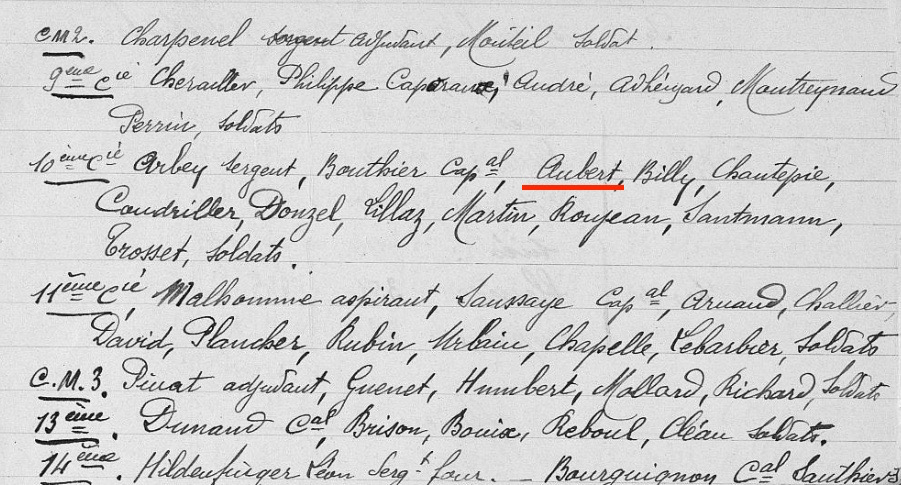 C.M.2. Charpenel sergent adjudant, Monteil soldat.
9ème Cie Cherailler, Philippe Caporaux, André, Adhéyard, Montreynaud
Perrin, soldats
10ème Cie Arbey sergent, Bouthier Capal, Aubert, Billy, Chantepie,
Coudriller, Donzel, Lillaz, Martin, Roujean, Santmann,
Trosset, soldats.
11ème Cie, Malhomme aspirant, Saussaye Capal, Arnaud, Challier,
David, Plancher, Rubin, Urbain, Chapelle, Lebarbier, Soldats
C.M.3. Pinat adjudant, Guenet, Humbert, Mollard, Richard, Soldats
13ème. Dunand Cal, Brison, Bouix, Reboul, Cléau soldats.
14ème. Hildenfinger Léon Sergt four. — Bourguignon Cal Santhier